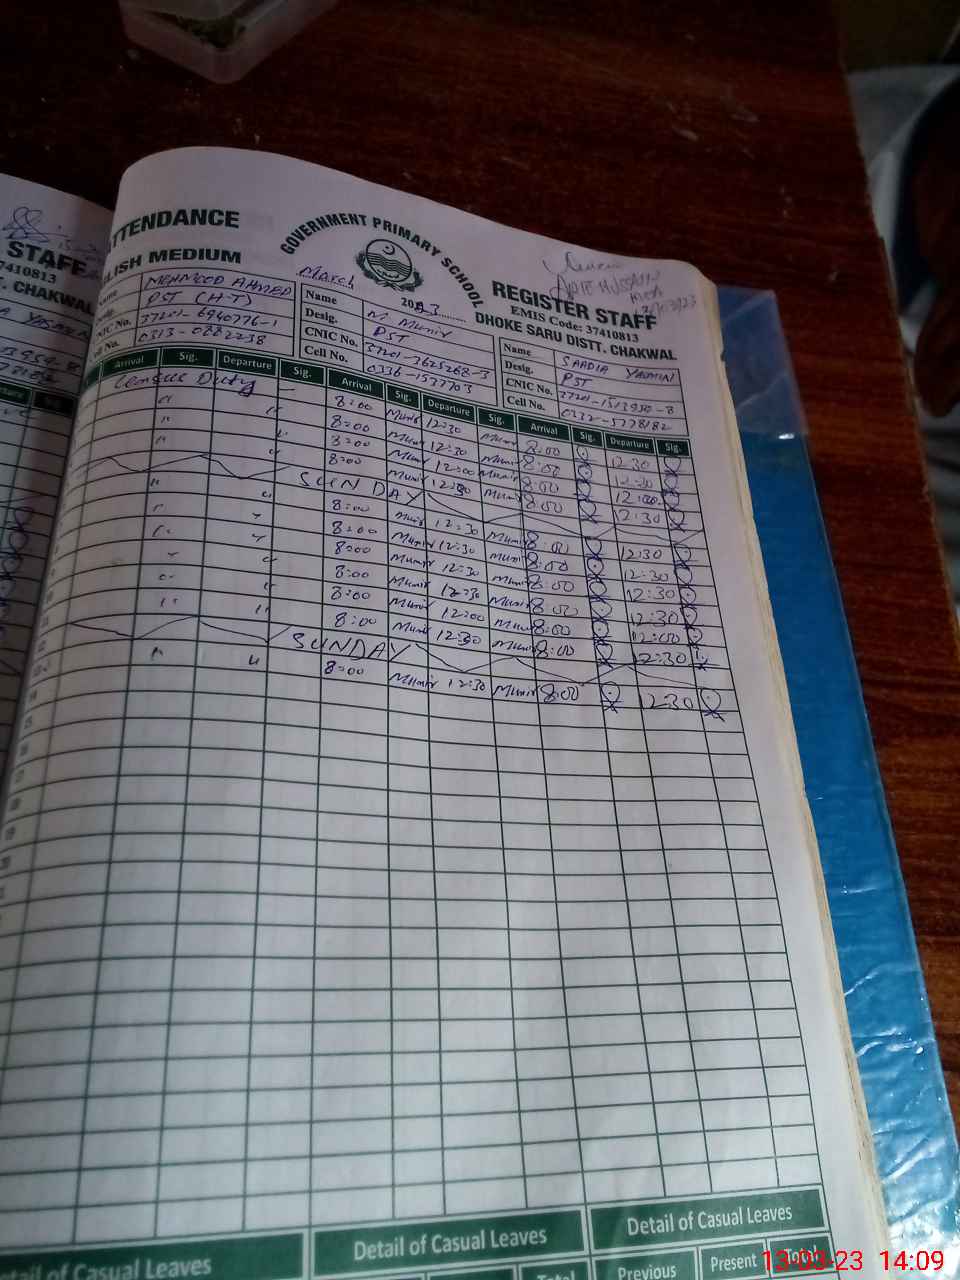 ATTENDANCE
GOVERNMENT PRIMARY SCHOOL
REGISTER STAFF
ENGLISH MEDIUM
EMIS Code: 37410813
DHOKE SARU DISTT. CHAKWAL
March
STAFF
CHAKWAL
Name MEHMOOD AHMED
Desig. PST (H-T)
CNIC No. 37201-6940776-1
Cell No. 0313-0882238
Name M Munir
Desig. PST
CNIC No. 37201-3625268-3
Cell No. 0336-1537703
Name SAADIA YASMIN
Desig. PST
CNIC No.
Cell No. 0332-5778182
Arrival Sig. Departure Sig. Arrival Sig. Departure Sig. Arrival Sig. Departure Sig.
Census Duty 8:00 Munir 12:30 Munir 8:00 12:30
" " 8:00 Munir 12:30 Munir 8:00 12:30
" " 8:00 Munir 12:00 Munir 8:00 12:00
" 8:00 Munir 12:30 Munir 8:00 12:30
SUNDAY
" " 8:00 Munir 12:30 Munir 8:00 12:30
" " 8:00 Munir 12:30 Munir 8:00 12:30
" " 8:00 Munir 12:30 Munir 8:00 12:30
" " 8:00 Munir 12:30 Munir 8:00 12:30
" " 8:00 Munir 12:00 Munir 8:00 12:00
" " 8:00 Munir 12:30 Munir 8:00 12:30
SUNDAY
" " 8:00 Munir 12:30 Munir 8:00 12:30
Detail of Casual Leaves
Detail of Casual Leaves
Detail of Casual Leaves
Total
Previous Present Total
13-03-23 14:09